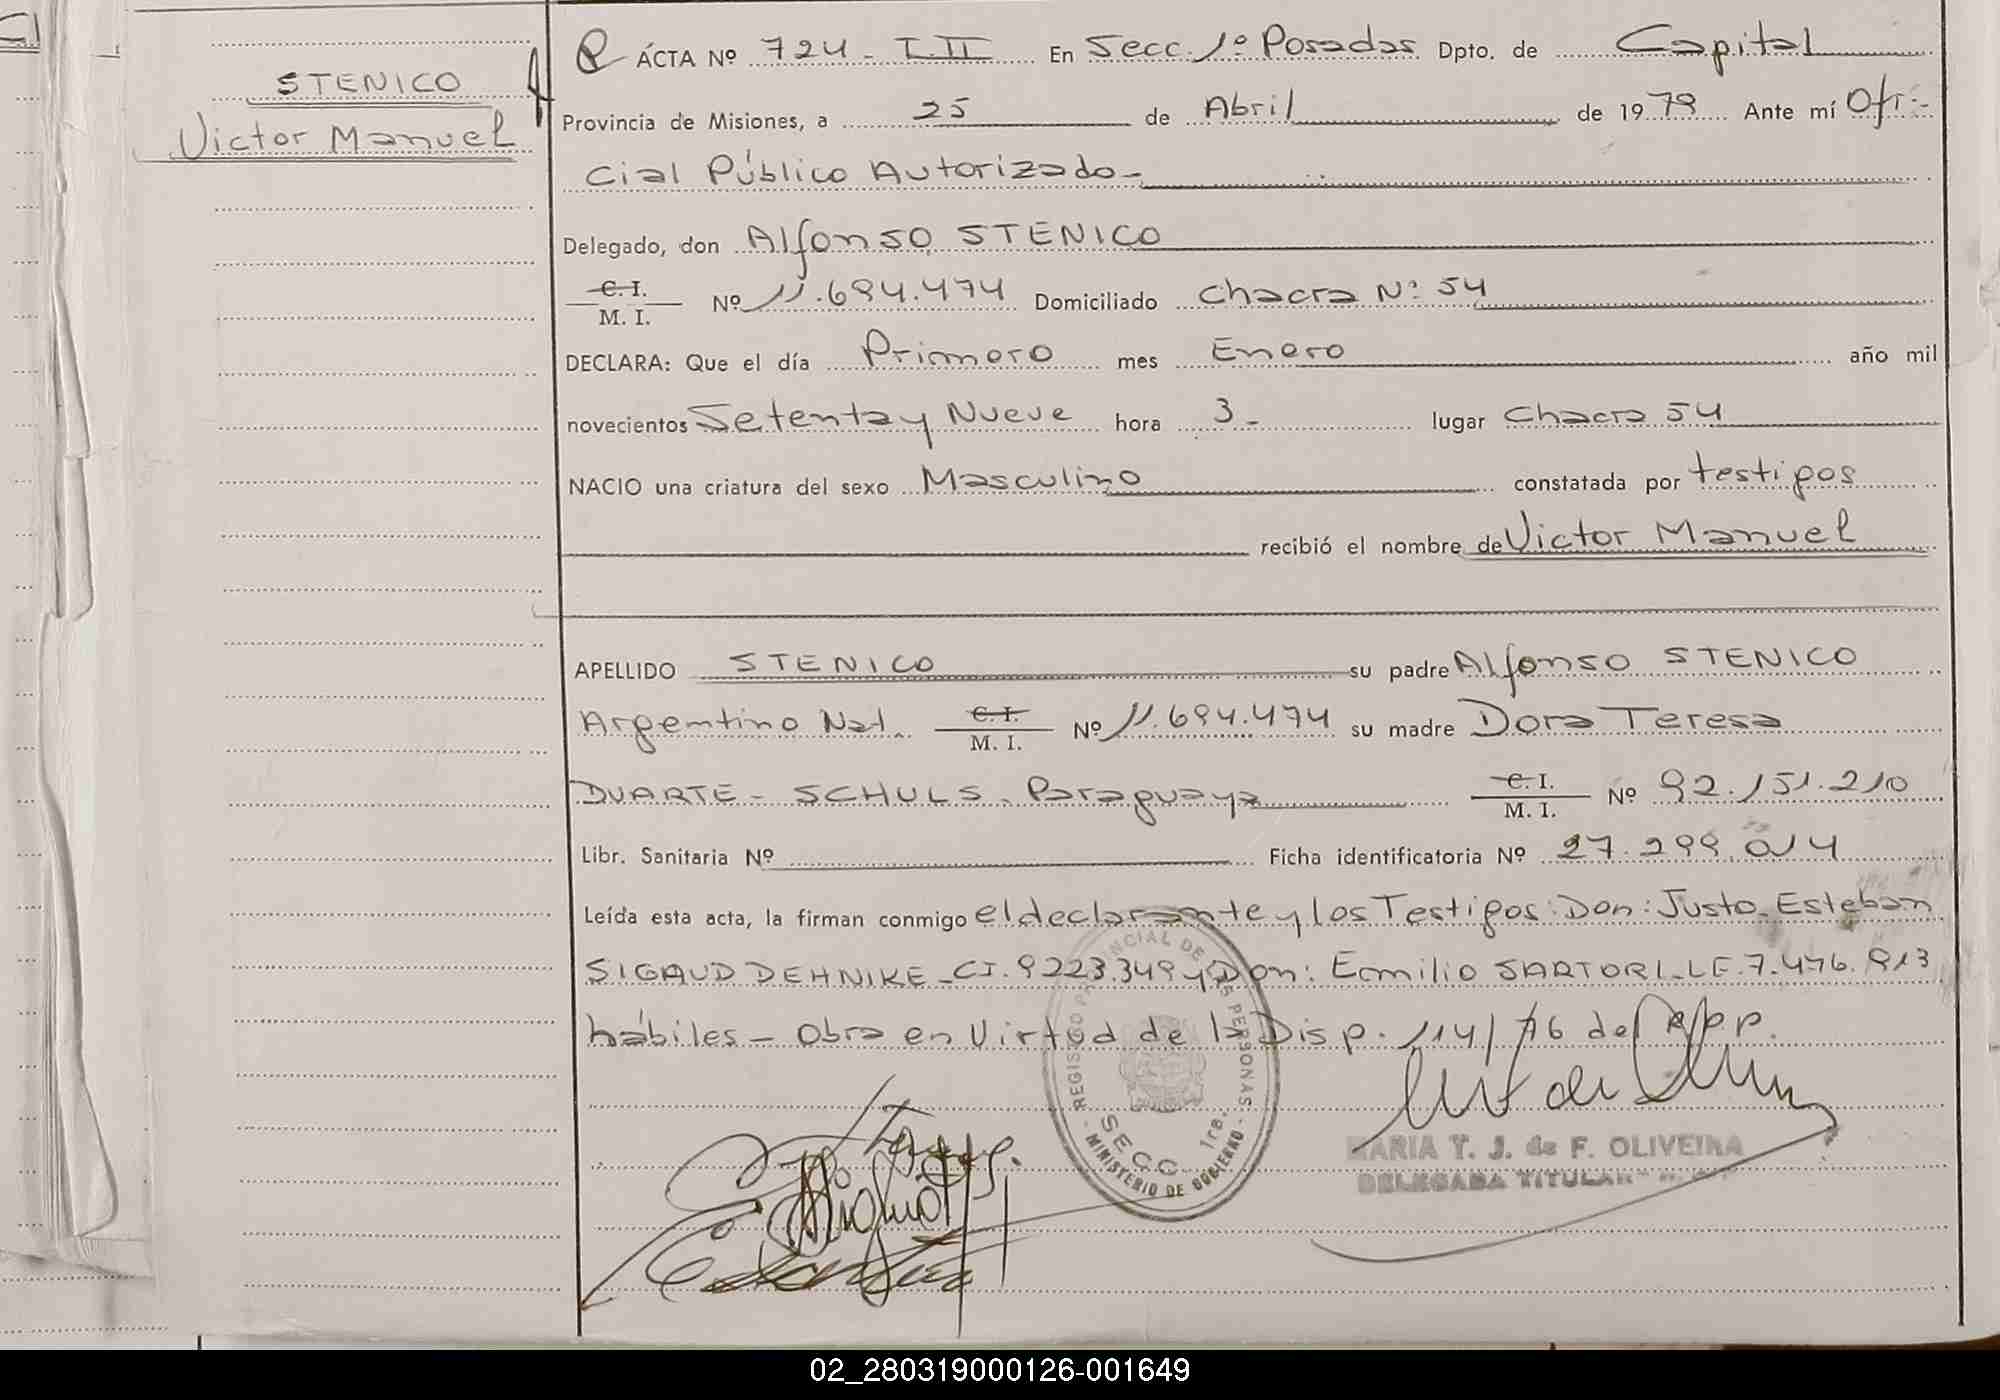 STENICO
Victor Manuel
ÁCTA Nº 724 - T. II En Secc. 1º Posadas Dpto. de Capital
Provincia de Misiones, a 25 de Abril de 1979 Ante mí Ofi-
cial Público Autorizado-
Delegado, don Alfonso STENICO
C. I.
M. I. Nº 11.694.474 Domiciliado Chacra Nº 54
DECLARA: Que el día Primero mes Enero año mil
novecientos Setenta y Nueve hora 3- lugar Chacra 54
NACIO una criatura del sexo Masculino constatada por testigos
recibió el nombre de Victor Manuel
APELLIDO STENICO su padre Alfonso STENICO
Argentino Nat. C. I.
M. I. Nº 11.694.474 su madre Dora Teresa
DUARTE - SCHULS. Paraguaya C. I.
M. I. Nº 92.151.210
Libr. Sanitaria Nº Ficha identificatoria Nº 27.299.014
Leída esta acta, la firman conmigo el declarante y los Testigos: Don: Justo Esteban
SIGAUD DEHNIKE - CI. 9223.349 y Don: Emilio SARTORI - LE. 7.476.913
hábiles - Obra en Virtud de la Disp. 114/76 del R.P.P.
REGISTRO PROVINCIAL DE LAS PERSONAS
SECC. 1ra.
- MINISTERIO DE GOBIERNO -
MARIA T. J. de F. OLIVEIRA
DELEGADA TITULAR
02_280319000126-001649